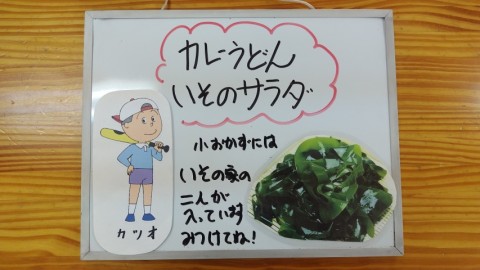 カレーうどん
いそのサラダ
小おかずには
いその家の
二人が
入っています
みつけてね!
カツオ